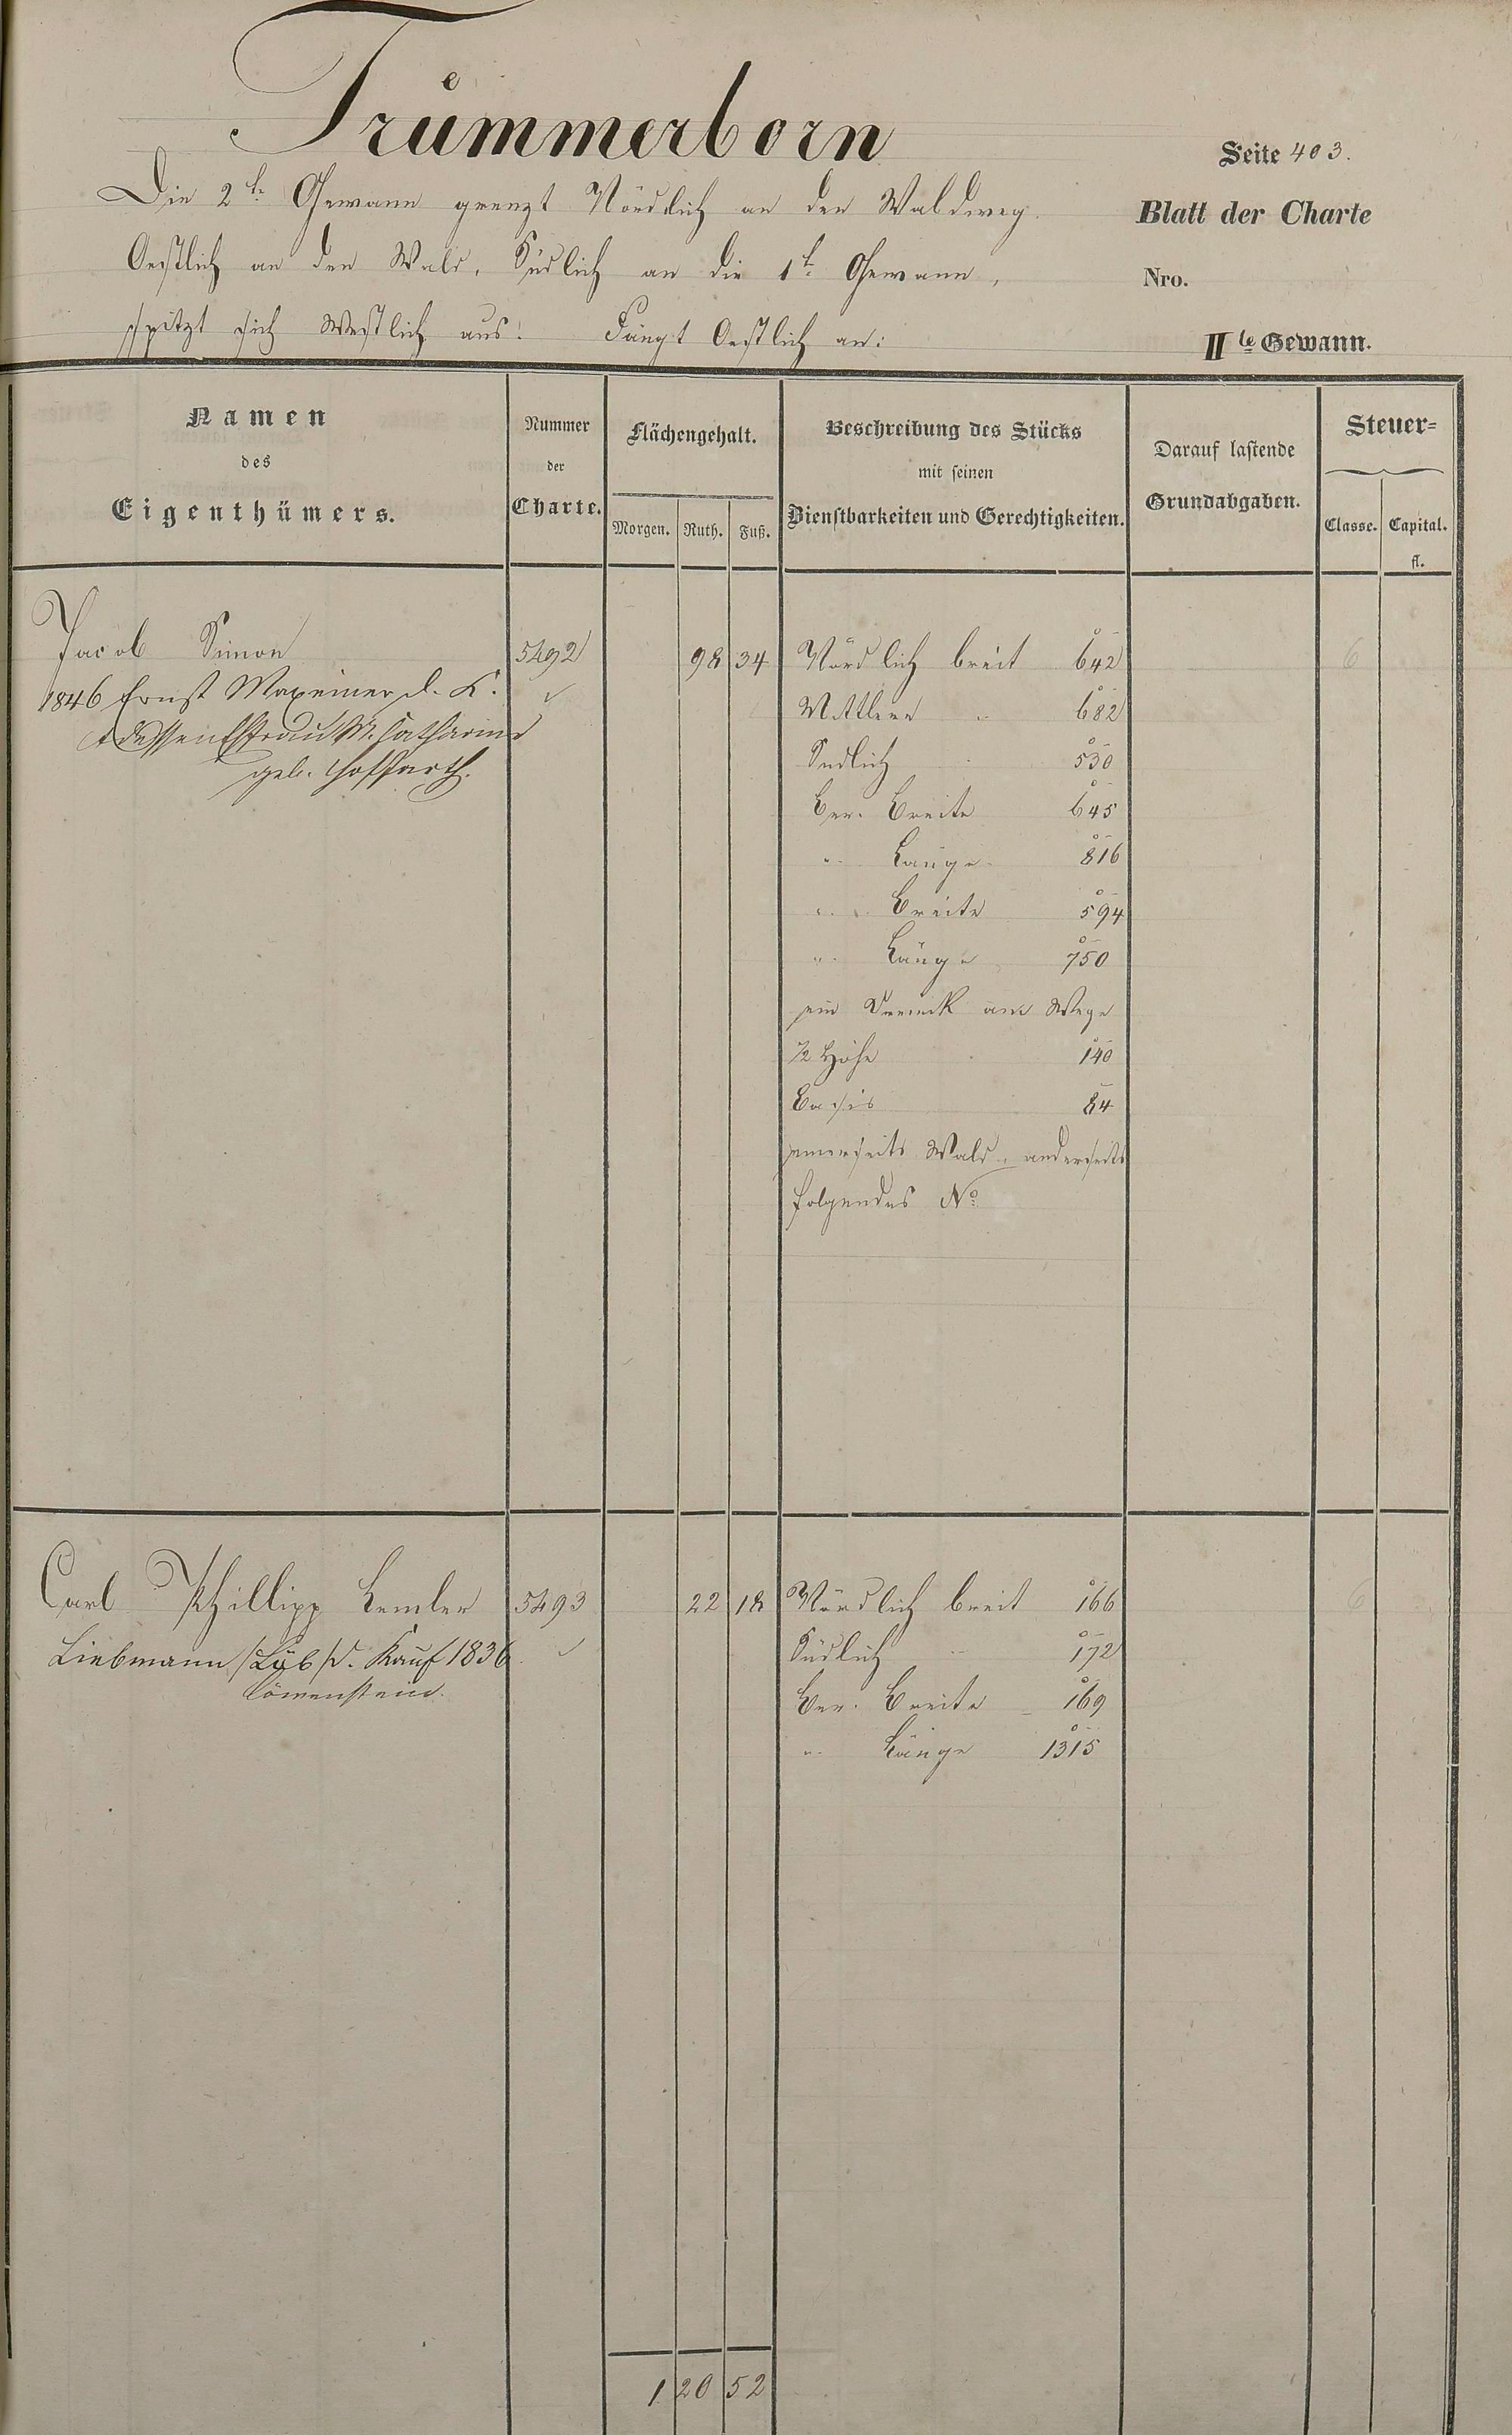 Trümmerborn
Seite 403.
Die 2te Gewann grenzt Nördlich an den Waldweg.
Blatt der Charte
Oestlich an den Wald, Südlich an die 1te Gewann,
Nro.
spitzt sich Westlich aus. Fängt Oestlich an:
IIte Gewann.
Namen
des
Eigenthümers.
Nummer
der
Charte.
Flächengehalt.
Morgen. Ruth. Fuß.
Beschreibung des Stücks
mit seinen
Dienstbarkeiten und Gerechtigkeiten.
Darauf lastende
Grundabgaben.
Steuer=
Classe. Capital.
fl.
Jacob Simon 5492 98 34 Nördlich breit 642 6
1846 Ernst Maxeiner d. K.
& dessen Ehefrau M. Catharina
geb. Hoffarth.
Mittlere " 682
Südlich 530
Ber. Breite 645
" Länge 816
" Breite 594
" Länge 750
ein Dreieck am Wege
½ Höhe 140
Basis 84
einerseits Wald, anderseits
folgendes No
Carl Phillipp Lemler 5493 22 18 Nördlich breit 166 6
Liebmann /Löb/ d. Kauf 1836
Löwenstein.
Südlich " 172
Ber. Breite 169
" Länge 1315
1 20 52